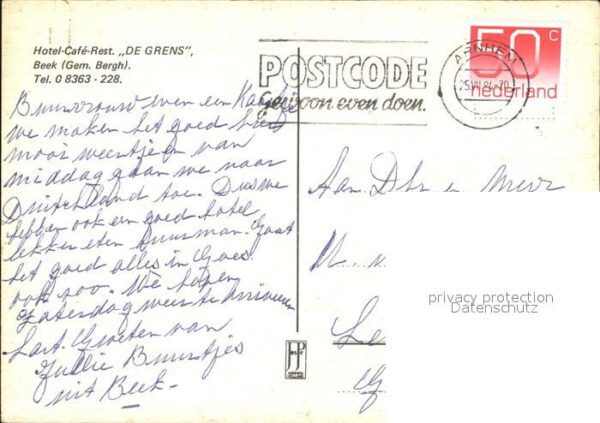 Hotel-Café-Rest. „DE GRENS",
Beek (Gem. Bergh).
Tel. 0 8363 - 228.
POSTCODE
Gewoon even doen.
ARNHEM
50 C
nederland
Buurvrouw even een Kaartje
we maken het goed heel
mooi weertje en van
middag gaan we naar
Duitschland toe. Dus we
hebben ook een goed hotel
lekker eten Buurman. Gaat
het goed alles in Goes
ook zoo. We hopen
Zaterdag weer te
hart. Groeten van
Jullie Buurtjes
uit Beek-
Aan Dhr en Mevr
privacy protection
Datenschutz
JP